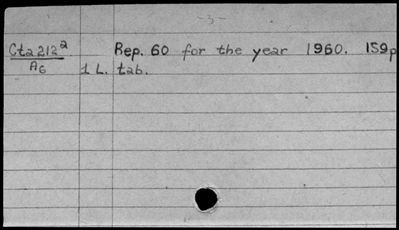 -3-
Cta212² Rep. 60 for the year 1960. 159p
A6 1 L. tab.